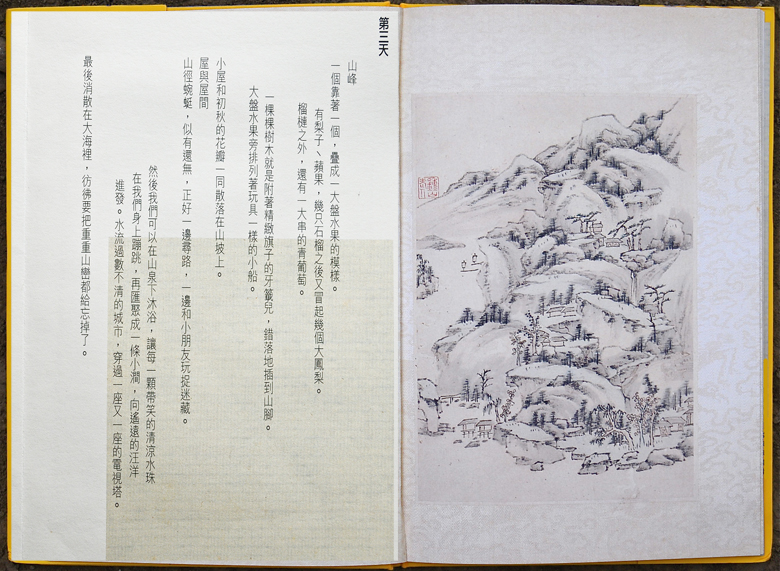 第三天
山峰
一個靠著一個，疊成一大盤水果的模樣。
有梨子、蘋果，幾只石榴之後又冒起幾個大鳳梨。
榴槤之外，還有一大串的青葡萄。
一棵棵樹木就是附著精緻旗子的牙籤兒，錯落地插到山腳。
大盤水果旁排列著玩具一樣的小船。
小屋和初秋的花瓣一同散落在山坡上。
屋與屋間
山徑蜿蜒，似有還無，正好一邊尋路，一邊和小朋友玩捉迷藏。
然後我們可以在山泉下沐浴，讓每一顆帶笑的清涼水珠
在我們身上蹦跳，再匯聚成一條小澗，向遙遠的汪洋
進發。水流過數不清的城市，穿過一座又一座的電視塔。
最後消散在大海裡，彷彿要把重重山巒都給忘掉了。